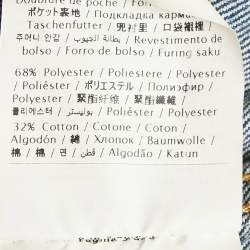 Doublure de poche / Forro
ポケット裏地 / Подкладка карман
Taschenfutter / 兜衬里 / 口袋襯裡
주머니 안감 / بطانة الجيوب / Revestimento de
bolso / Forro de bolso / Furing saku
68% Polyester / Poliestere / Polyester
/ Poliéster / ポリエステル / Полиэфир /
Polyester / 聚酯纤维 / 聚酯纖維
폴리에스터 / بوليستر / Poliéster / Polyester
32% Cotton / Cotone / Coton /
Algodón / 綿 / Хлопок / Baumwolle /
棉 / 棉 / 면 / قطن / Algodão / Katun